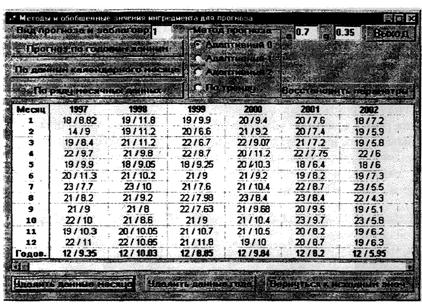 Методы и обобщенные значения ингредиента для прогноза
Вид прогноза и заблаговр. 1 Метод прогноза 0.7 0.35 Выход
Прогноз по годовым данным Адаптивный 0
По данным календарного месяца Адаптивный
По ряду месячных данных По тренду Восстановить параметры
Месяц 1997 1998 1999 2000 2001 2002
1 18 / 8.82 19 / 11.8 19 / 9.9 20 / 9.4 20 / 7.6 18 / 7.2
2 14 / 9 19 / 11.2 20 / 6.6 21 / 9.2 20 / 7.4 19 / 5.9
3 19 / 8.4 21 / 11.2 22 / 6.7 22 / 9.07 21 / 7.2 19 / 5.8
4 22 / 9.7 21 / 9.8 22 / 8.7 20 / 11.2 22 / 7.75 22 / 6
5 19 / 9.9 18 / 9.05 18 / 9.25 20 / 10.3 18 / 6.4 18 / 6
6 20 / 11.3 21 / 10.2 21 / 9 21 / 9.2 19 / 8.2 19 / 7.3
7 23 / 7.7 23 / 10 21 / 7.6 21 / 10.4 22 / 8.7 23 / 5.5
8 21 / 8.2 21 / 9.2 22 / 7.98 23 / 8.4 23 / 8.4 22 / 4.3
9 21 / 9 21 / 8 22 / 7.63 21 / 9.68 20 / 9.5 19 / 5.1
10 22 / 10 21 / 8.6 21 / 9 21 / 10.4 23 / 9.7 23 / 5.8
11 19 / 10.3 20 / 10.05 21 / 10.7 21 / 10.5 20 / 8.2 19 / 6.3
12 22 / 11 22 / 10.65 21 / 11.8 19 / 10 20 / 8.7 19 / 6.2
Годов. 12 / 9.35 12 / 10.03 12 / 8.85 12 / 9.84 12 / 8.2 12 / 5.95
Удалить данные месяца Удалить данные года Вернуться к исходным знач.